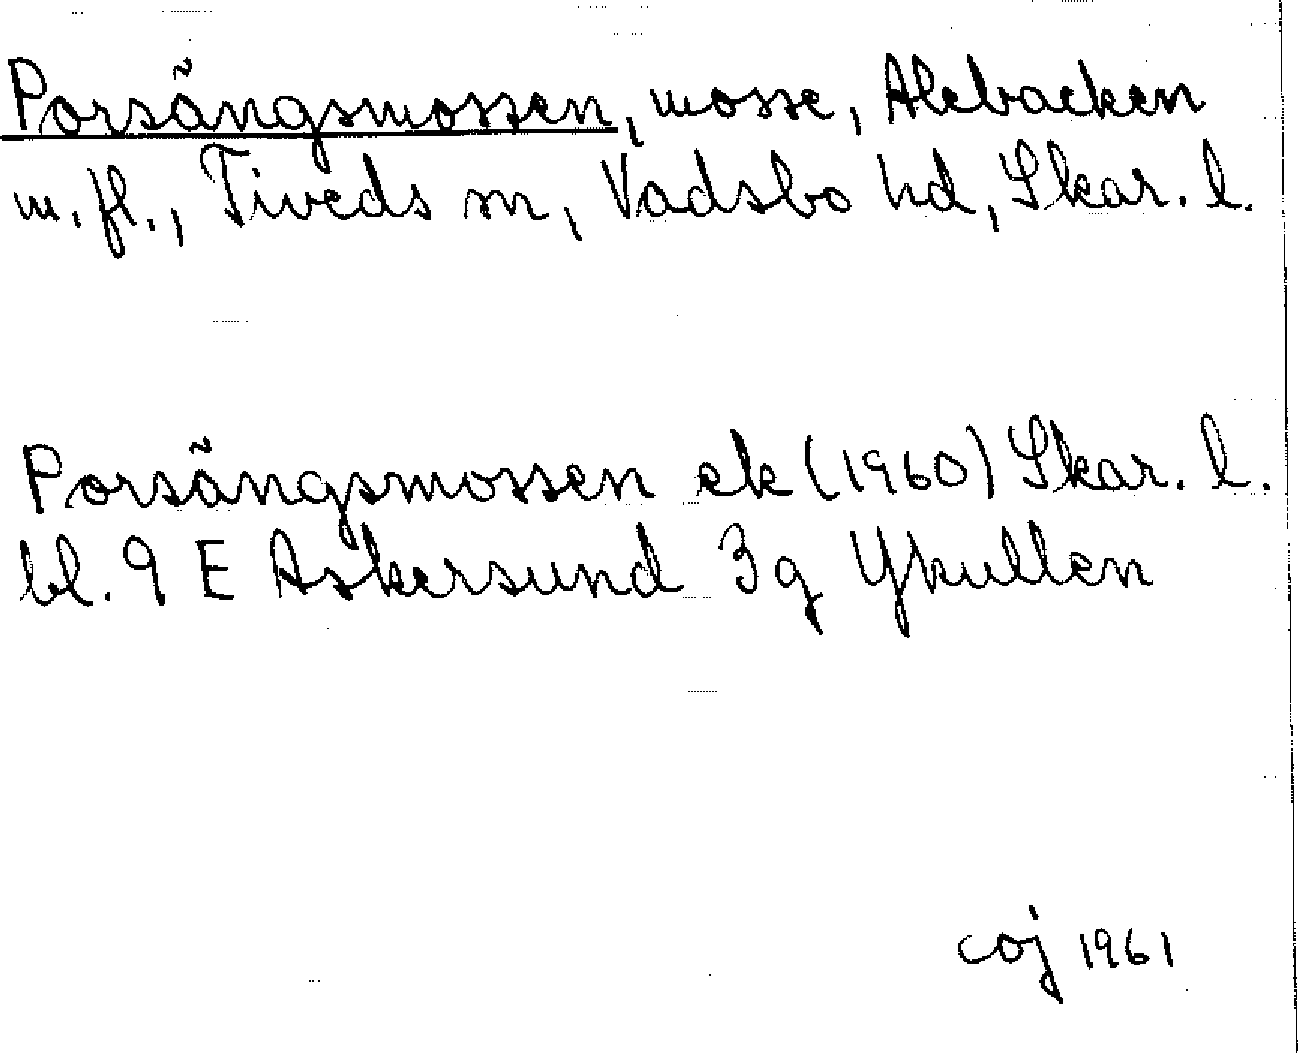 Porsängsmossen, mosse, Alebacken
m. fl., Tiveds sn, Vadsbo hd, Skar. l.
Porsängsmossen ek (1960) Skar. l.
bl. 9 E Askersund 3g Ykullen
coj 1961